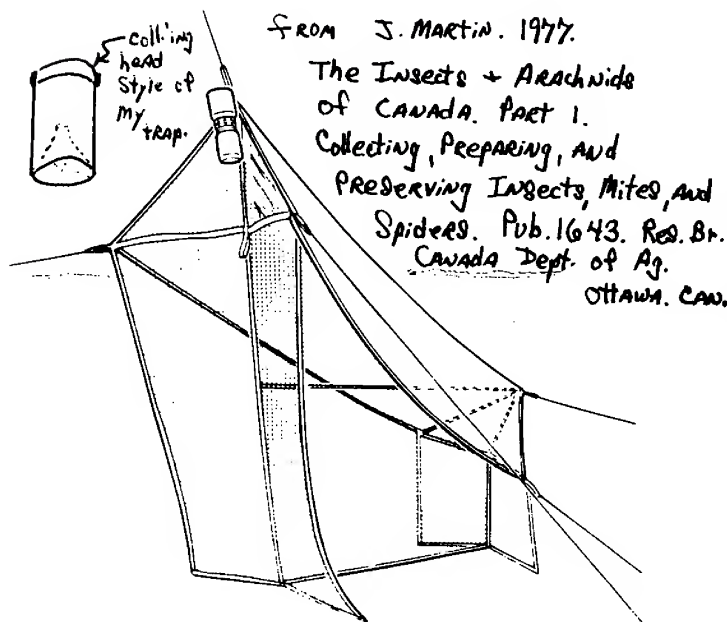 coll'ing
head
Style of
My trap.
from J. Martin. 1977.
The Insects + Arachnids
of CANADA. Part 1.
Collecting, Preparing, and
Preserving Insects, Mites, and
Spiders. Pub. 1643. Res. Br.
CANADA Dept. of Ag.
OTTAWA. CAN.